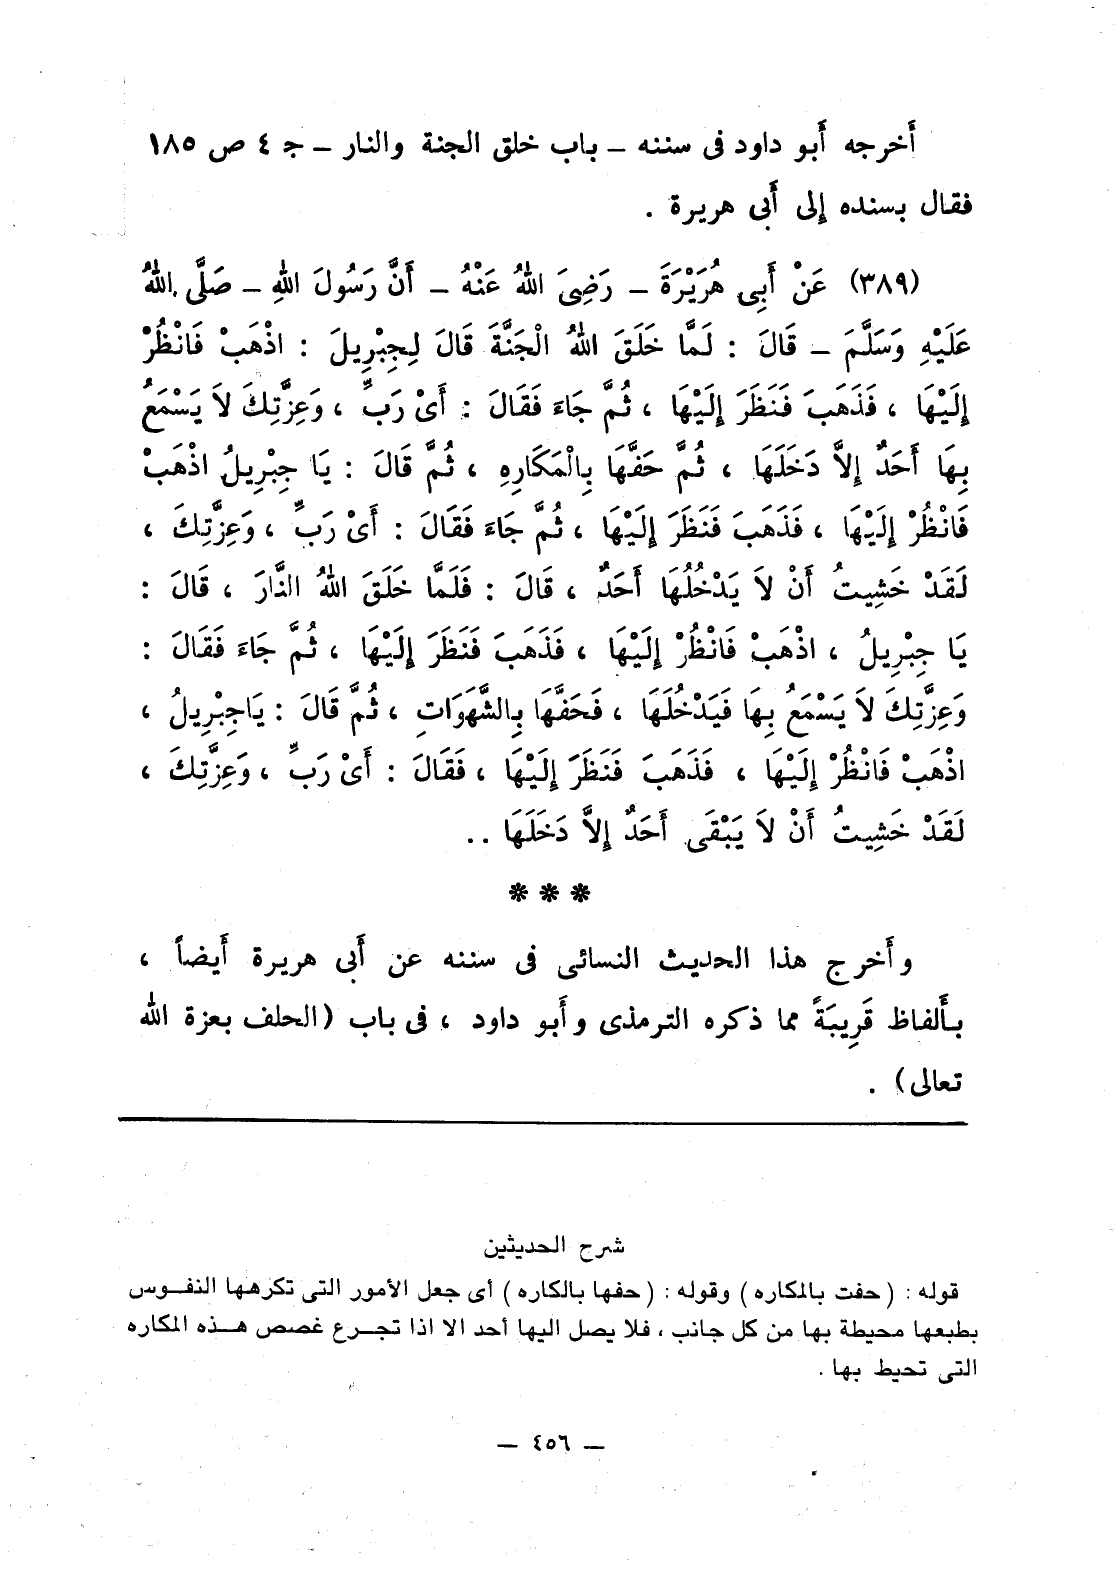 أخرجه أبو داود فى سننه – باب خلق الجنة والنار – جـ ٤ ص ١٨٥
فقال بسنده إلى أبى هريرة .
(٣٨٩) عَنْ أَبِى هُرَيْرَةَ – رَضِىَ اللهُ عَنْهُ – أَنَّ رَسُولَ اللهِ – صَلَّى اللهُ
عَلَيْهِ وَسَلَّمَ – قَالَ : لَمَّا خَلَقَ اللهُ الْجَنَّةَ قَالَ لِجِبْرِيلَ : اذْهَبْ فَانْظُرْ
إِلَيْهَا ، فَذَهَبَ فَنَظَرَ إِلَيْهَا ، ثُمَّ جَاءَ فَقَالَ : أَىْ رَبِّ ، وَعِزَّتِكَ لاَ يَسْمَعُ
بِهَا أَحَدٌ إِلاَّ دَخَلَهَا ، ثُمَّ حَفَّهَا بِالْمَكَارِهِ ، ثُمَّ قَالَ : يَا جِبْرِيلُ اذْهَبْ
فَانْظُرْ إِلَيْهَا ، فَذَهَبَ فَنَظَرَ إِلَيْهَا ، ثُمَّ جَاءَ فَقَالَ : أَىْ رَبِّ ، وَعِزَّتِكَ ،
لَقَدْ خَشِيتُ أَنْ لاَ يَدْخُلُهَا أَحَدٌ ، قَالَ : فَلَمَّا خَلَقَ اللهُ النَّارَ ، قَالَ :
يَا جِبْرِيلُ ، اذْهَبْ فَانْظُرْ إِلَيْهَا ، فَذَهَبَ فَنَظَرَ إِلَيْهَا ، ثُمَّ جَاءَ فَقَالَ :
وَعِزَّتِكَ لاَ يَسْمَعُ بِهَا فَيَدْخُلَهَا ، فَحَفَّهَا بِالشَّهَوَاتِ ، ثُمَّ قَالَ : يَاجِبْرِيلُ ،
اذْهَبْ فَانْظُرْ إِلَيْهَا ، فَذَهَبَ فَنَظَرَ إِلَيْهَا ، فَقَالَ : أَىْ رَبِّ ، وَعِزَّتِكَ ،
لَقَدْ خَشِيتُ أَنْ لاَ يَبْقَى أَحَدٌ إِلاَّ دَخَلَهَا ..
* * *
وأخرج هذا الحديث النسائى فى سننه عن أبى هريرة أيضاً ،
بألفاظ قَرِيبَةً مما ذكره الترمذى وأبو داود ، فى باب (الحلف بعزة الله
تعالى) .
شرح الحديثين
قوله : ( حفت بالمكاره ) وقوله : ( حفها بالكاره ) أى جعل الأمور التى تكرهها النفــوس
بطبعها محيطة بها من كل جانب ، فلا يصل اليها أحد الا اذا تجــرع غصص هــذه المكاره
التى تحيط بها .
– ٤٥٦ –